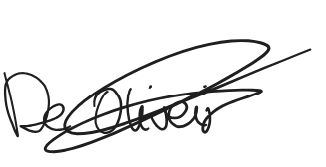 De Oliveir